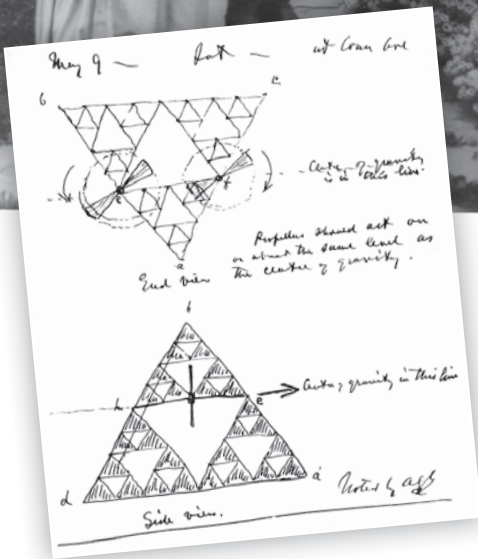 May 9 — — at
b c
Centre of gravity
is in this line
e f
Propellers should act on
or about the same level as
the centre of gravity.
a
End view
b
h e Centre of gravity in this line
d a
Side view.
Noted by AGB